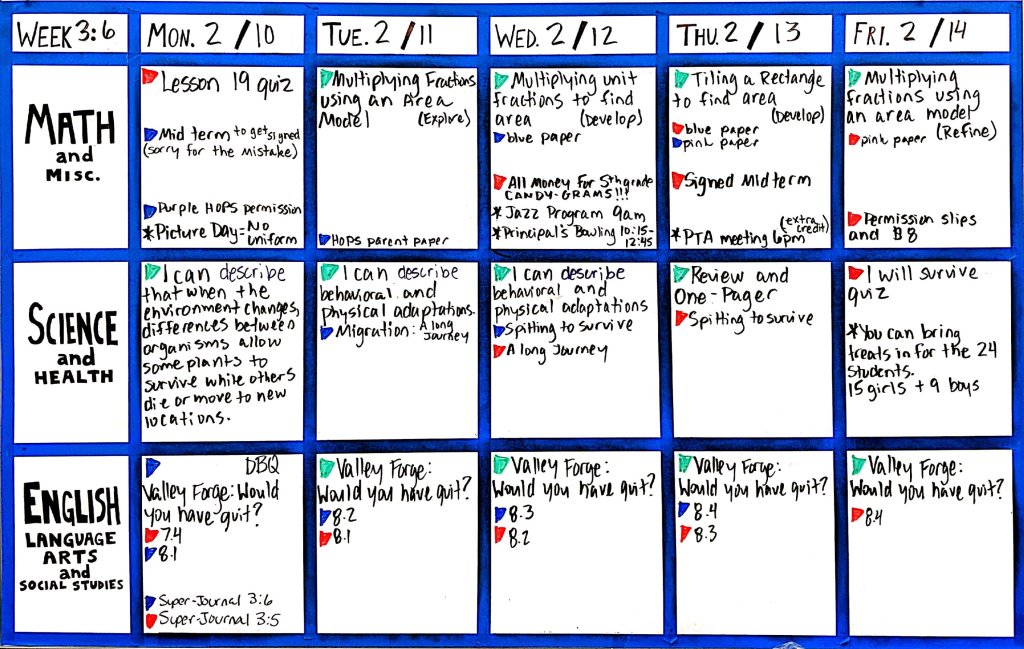 WEEK 3:6
MON. 2/10
TUE. 2/11
WED. 2/12
THU. 2/13
FRI. 2/14
MATH
and
MISC.
Lesson 19 quiz
Mid term to get signed
(sorry for the mistake)
Purple HOPS permission
*Picture Day= No
uniform
Multiplying Fractions
using an Area
Model (Explore)
HOPS parent paper
Multiplying unit
fractions to find
area (Develop)
blue paper
All Money for 5th grade
CANDY-GRAMS!!!
* Jazz Program 9am
*Principal's Bowling 10:15-
12:45
Tiling a Rectange
to find area
(Develop)
blue paper
pink paper
Signed Midterm
(extra
credit)
*PTA meeting 6pm
Multiplying
fractions using
an area model
pink paper (Refine)
Permission slips
and $8
SCIENCE
and
HEALTH
I can describe
that when the
environment changes,
differences between
organisms allow
some plants to
survive while others
die or move to new
locations.
I can describe
behavioral and
physical adaptations.
Migration: A long
Journey
I can describe
behavioral and
physical adaptations
Spitting to survive
A long Journey
Review and
One-Pager
Spitting to survive
I will survive
quiz
*You can bring
treats in for the 24
students.
15 girls + 9 boys
ENGLISH
LANGUAGE
ARTS
and
SOCIAL STUDIES
DBQ
Valley Forge: Would
you have quit?
7.4
8.1
Super-Journal 3:6
Super-Journal 3:5
Valley Forge:
Would you have quit?
8.2
8.1
Valley Forge:
Would you have quit?
8.3
8.2
Valley Forge:
Would you have quit?
8.4
8.3
Valley Forge:
Would you have quit?
8.4